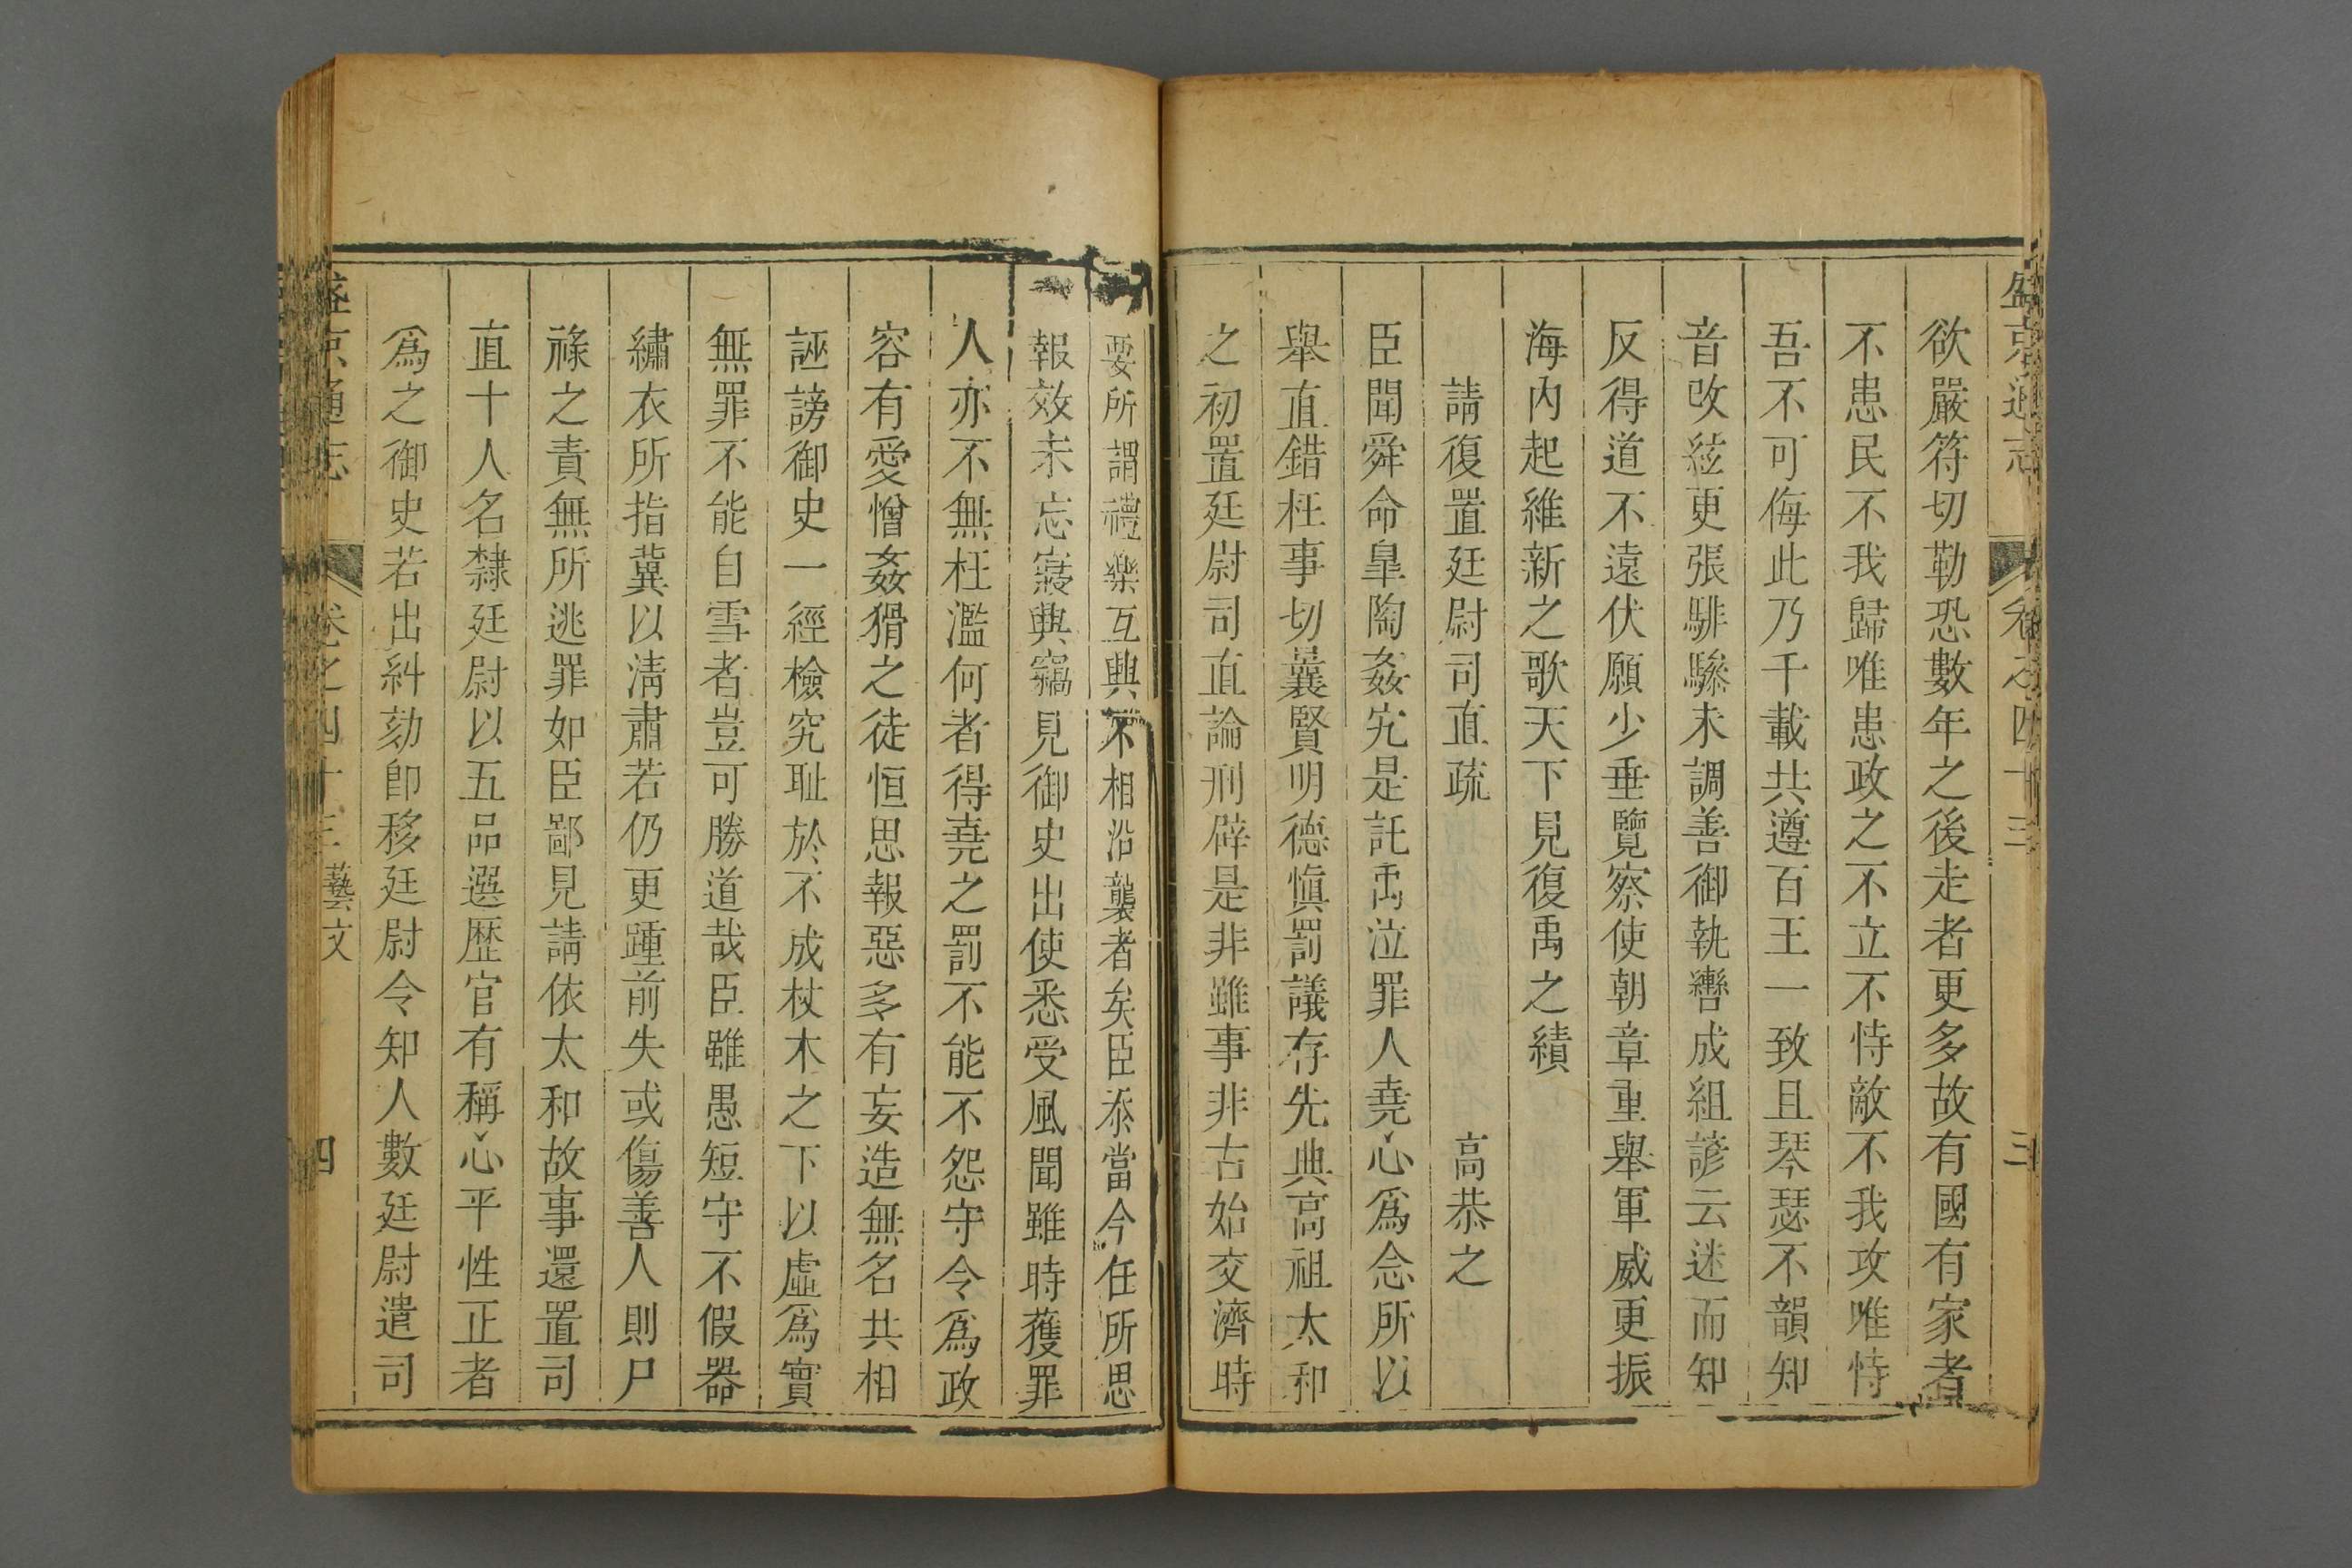 盛京通志 卷之四十三 三
欲嚴符切勒恐數年之後走者更多故有國有家者
不患民不我歸唯患政之不立不恃敵不我攻唯恃
吾不可侮此乃千載共遵百王一致且琴瑟不韻知
音改絃更張騑驂未調善御執轡成組諺云迷而知
反得道不遠伏願少垂覽察使朝章重舉軍威更振
海内起維新之歌天下見復禹之績
請復置廷尉司直疏 高恭之
臣聞舜命臯陶姦宄是託禹泣罪人堯心爲念所以
舉直錯枉事切曩賢明德愼罰議存先典高祖太和
之初置廷尉司直論刑辟是非雖事非古始交濟時
要所謂禮樂互興不相沿襲者矣臣忝當今任所思
報效未忘寢興竊見御史出使悉受風聞雖時獲罪
人亦不無枉濫何者得堯之罰不能不怨守令爲政
容有愛憎姦猾之徒恒思報惡多有妄造無名共相
誣謗御史一經檢究耻於不成杖木之下以虛爲實
無罪不能自雪者豈可勝道哉臣雖愚短守不假器
繡衣所指冀以清肅若仍更踵前失或傷善人則尸
祿之責無所逃罪如臣鄙見請依太和故事還置司
直十人名隸廷尉以五品選歷官有稱心平性正者
爲之御史若出糾劾卽移廷尉令知人數廷尉遣司
盛京通志 卷之四十三 藝文 四